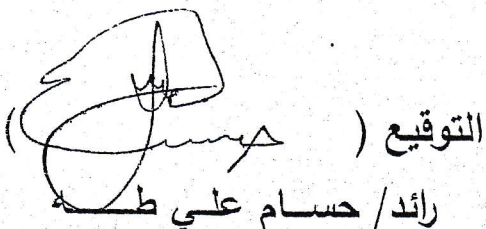 التوقيع ( )
رائد/ حسام علي طه